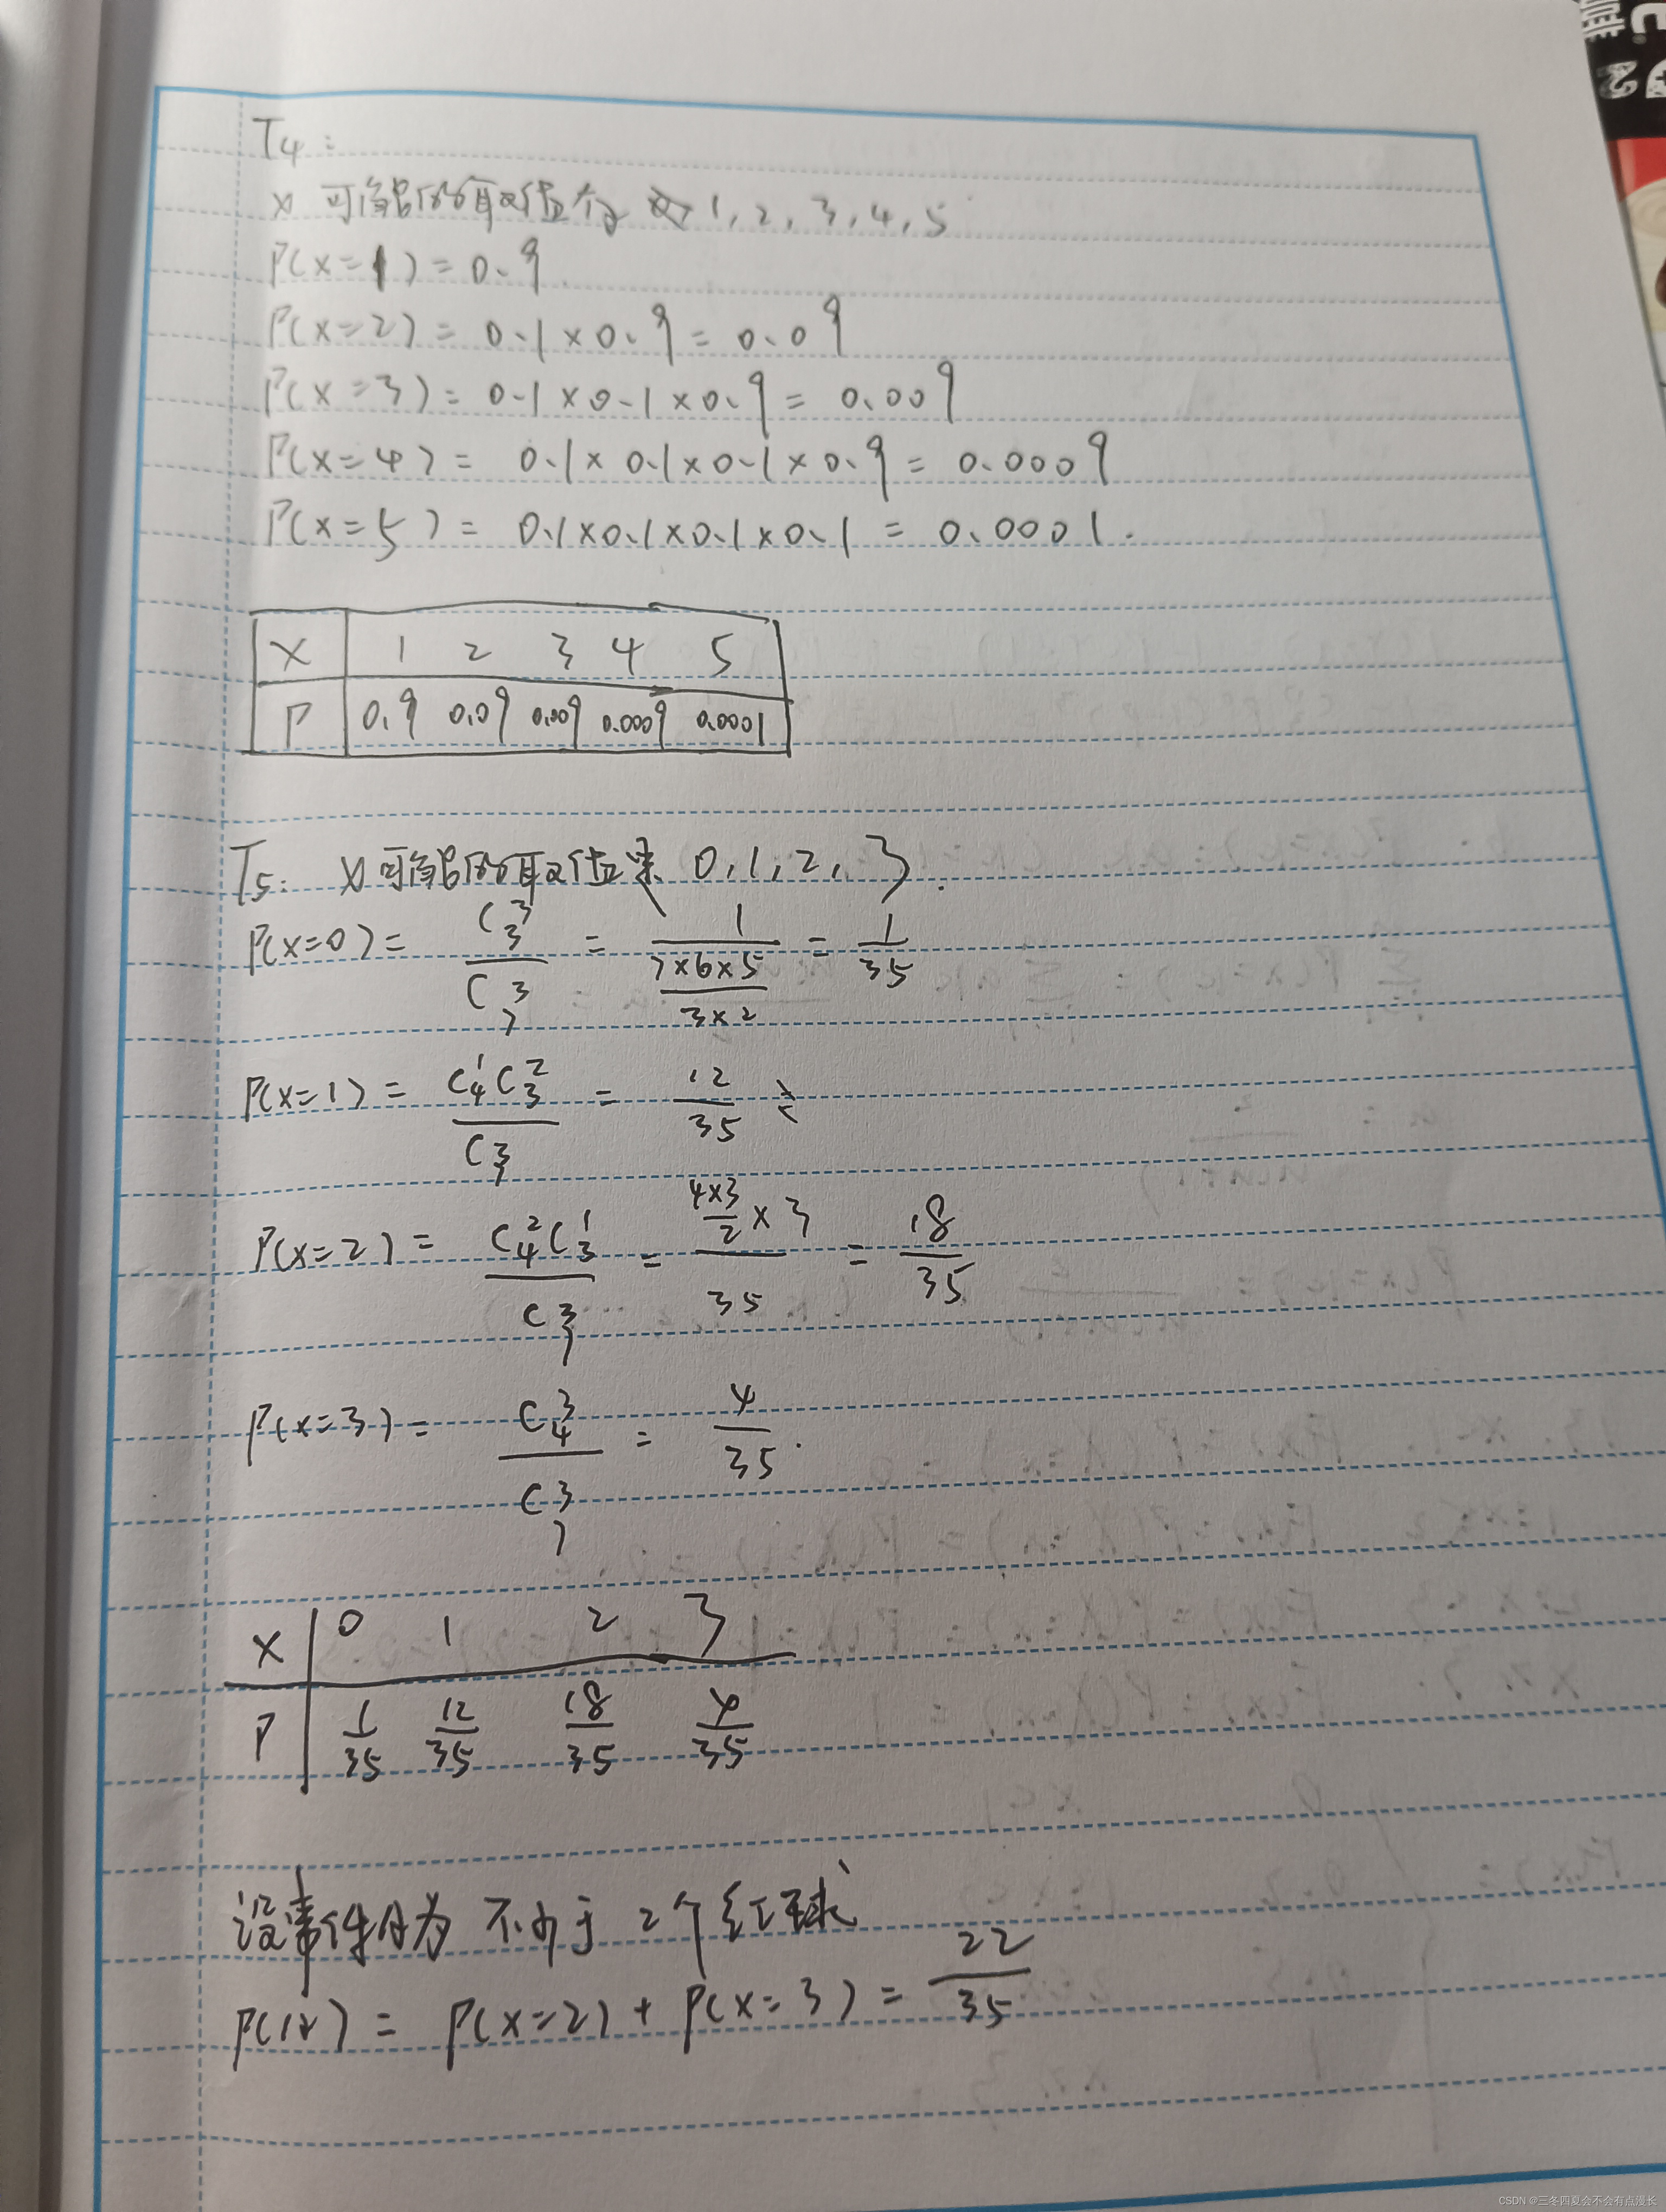 T4:
X 可能的取值为 1, 2, 3, 4, 5
P(X=1) = 0.9
P(X=2) = 0.1×0.9 = 0.09
P(X=3) = 0.1×0.1×0.9 = 0.009
P(X=4) = 0.1×0.1×0.1×0.9 = 0.0009
P(X=5) = 0.1×0.1×0.1×0.1 = 0.0001.
X 1 2 3 4 5
P 0.9 0.09 0.009 0.0009 0.0001
T5: X可能的取值是 0, 1, 2, 3.
P(X=0) = C_3^3 / C_7^3 = 1 / (7×6×5 / 3×2) = 1/35
P(X=1) = C_4^1 C_3^2 / C_7^3 = 12/35
P(X=2) = C_4^2 C_3^1 / C_7^3 = (4×3/2 × 3) / 35 = 18/35
P(X=3) = C_4^3 / C_7^3 = 4/35.
X 0 1 2 3
P 1/35 12/35 18/35 4/35
设事件A为 不少于2个红球
P(A) = P(X=2) + P(X=3) = 22/35
CSDN @三冬四夏会不会有点漫长